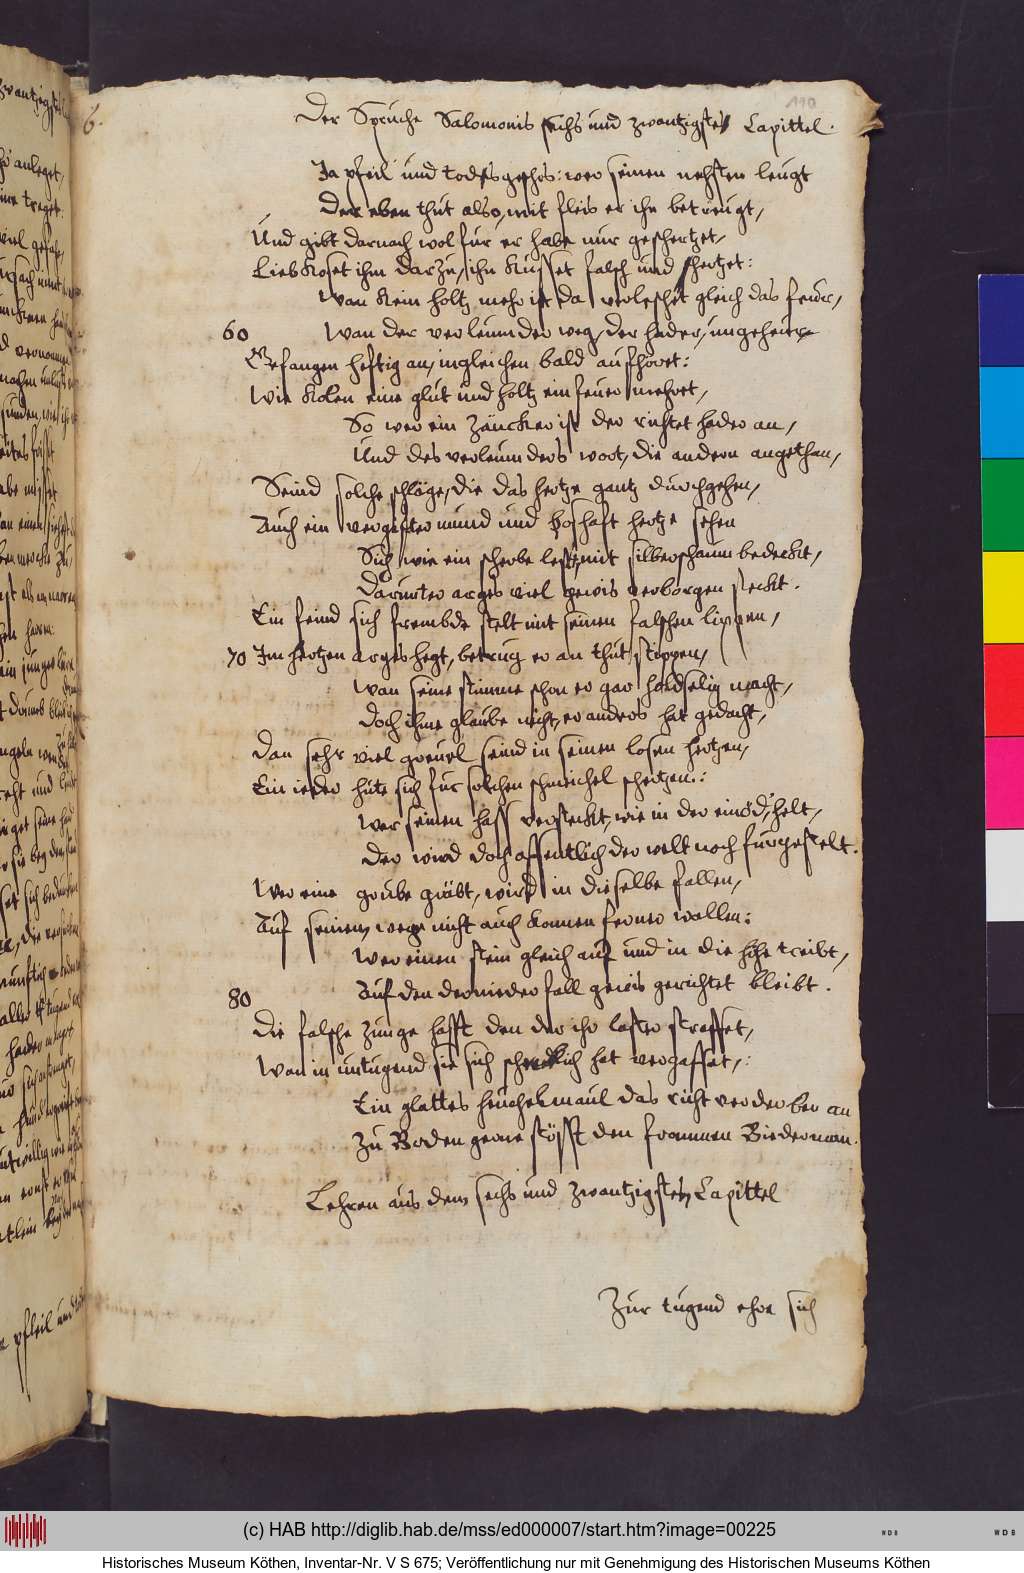 110
Der Sprüche Salomonis sechs und zwantzigstes Capittel.
Ja pfeil und todesgeschos: wer seinen nehsten leugt
Der eben thut also, mit fleis er ihn betreugt,
Und gibt darnach wol fur er habe nur geschertzet,
Liebkoset ihm darzu, ihn küsset falsch und hertzet:
Wan kein holtz mehr ist da verleschet gleich das feuer,
60 Wan der verleumder weg, der hader, ungeheur
Gefangen heftig an, ingleichen bald aufhöret:
Wie kolen eine glut und holtz ein feuer mehret,
So wer ein zäncker ist der richtet hader an,
Und des verleumders wort, die andern angethan,
Seind solche schläge, die das hertze gantz durchgehen,
Auch ein vergifter mund und boshaft hertze sehen
Sich wie ein scherbe lest, mit silberschaum bedeckt,
Darunter arges viel gewis verborgen steckt.
Ein feind sich frembde stelt mit seinen falschen lippen,
70 Im hertzen arges hegt, betrug er an thut stippen,
Wan seine stimme schon er gar holdselig macht,
Doch ihme glaube nicht, er anders hat gedacht,
Dan sehr viel greuel seind in seinen losen hertzen,
Ein ieder hüte sich fur solchen schmeichel schertzen:
Wer seinen hass versteckt, wie in der einöd', helt,
Der wird doch offentlich der welt noch furgestelt.
Wer eine grube gräbt, wird in dieselbe fallen,
Auf seinem wege nicht auch konnen ferner wallen:
Wer einen stein gleich auf und in die höhe treibt,
80 Auf den der nieder fall gewis gerichtet bleibt.
Die falsche zunge hasst den der ihr laster straffet,
Wan in untugend sie sich schendlich hat vergaffet,:
Ein glattes heuchelmaul das richt verderben an
Zu Boden gerne stösst den frommen Biederman.
Lehren aus dem sechs und zwantzigsten Capittel
Zur tugend ehre sich
(c) HAB http://diglib.hab.de/mss/ed000007/start.htm?image=00225
WDB
WDB
Historisches Museum Köthen, Inventar-Nr. V S 675; Veröffentlichung nur mit Genehmigung des Historischen Museums Köthen